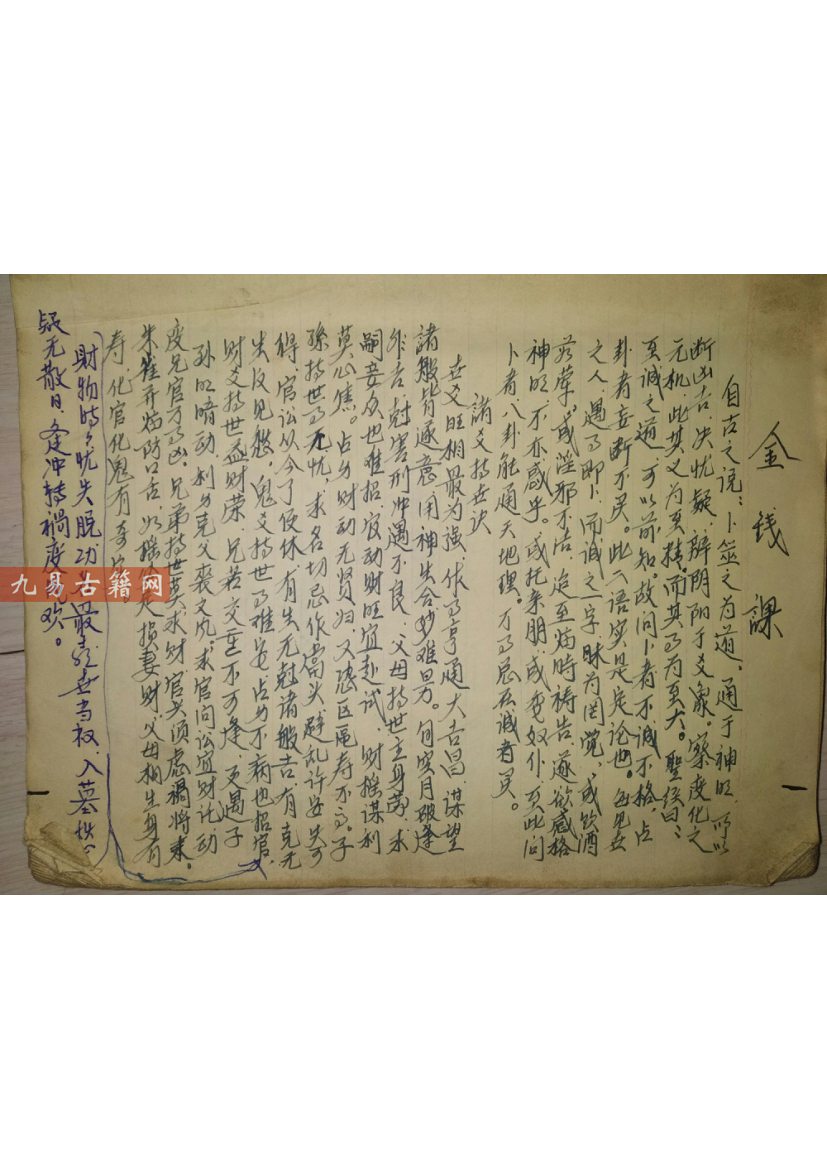 金钱课
自古之说：卜筮之为道，通于神明，所以
断凶吉，决忧疑，辨阴阳于爻象。察变化之
无机，此其义为至精，而其为至大。聖经曰：
至诚之道，可以前知。故问卜者不诚不格，占
卦者妄断不灵。此二语实是定论也。每见世
之人，遇事即卜，而诚之一字，昧为罔觉，或饮酒
茹荤，或淫邪不洁，迨至临時祷告，遂欲感格
神明，不亦惑乎。或托亲朋，或委奴仆，至此问
卜者，八卦能通天地理。万事总在诚者灵。
諸爻持世诀
世爻旺相最为强，作事亨通大吉昌，谋望
諸般皆遂意，用神生合妙难量。旬空月破逢
非吉，尅害刑冲遇不良。父母持世主身劳，求
嗣妾众也难招，官动财旺宜赴试，财摇谋利
莫心焦。占身财动无贤妇，又恐区區寿不高。子
孫持世事无忧，求名切忌作當头，避乱许安失可
得，官讼从今了便休，有生无尅諸般吉，有克无
生反见愁，鬼爻持世事难安，占身不病也招官，
财爻持世益财荣，兄若交重不可逢，更遇子
孙明暗动，利身克父丧文风，求官问讼宜财托，动
变兄官万事凶，兄弟持世莫求财，官兴须虑禍将来。
朱雀并临防口舌，如摇必定损妻财，父母相生身有
寿，化官化鬼有奇
财物時々忧失脱，功名最喜世当权，入墓
疑无散日，逢冲转禍变成欢。
九易古籍网